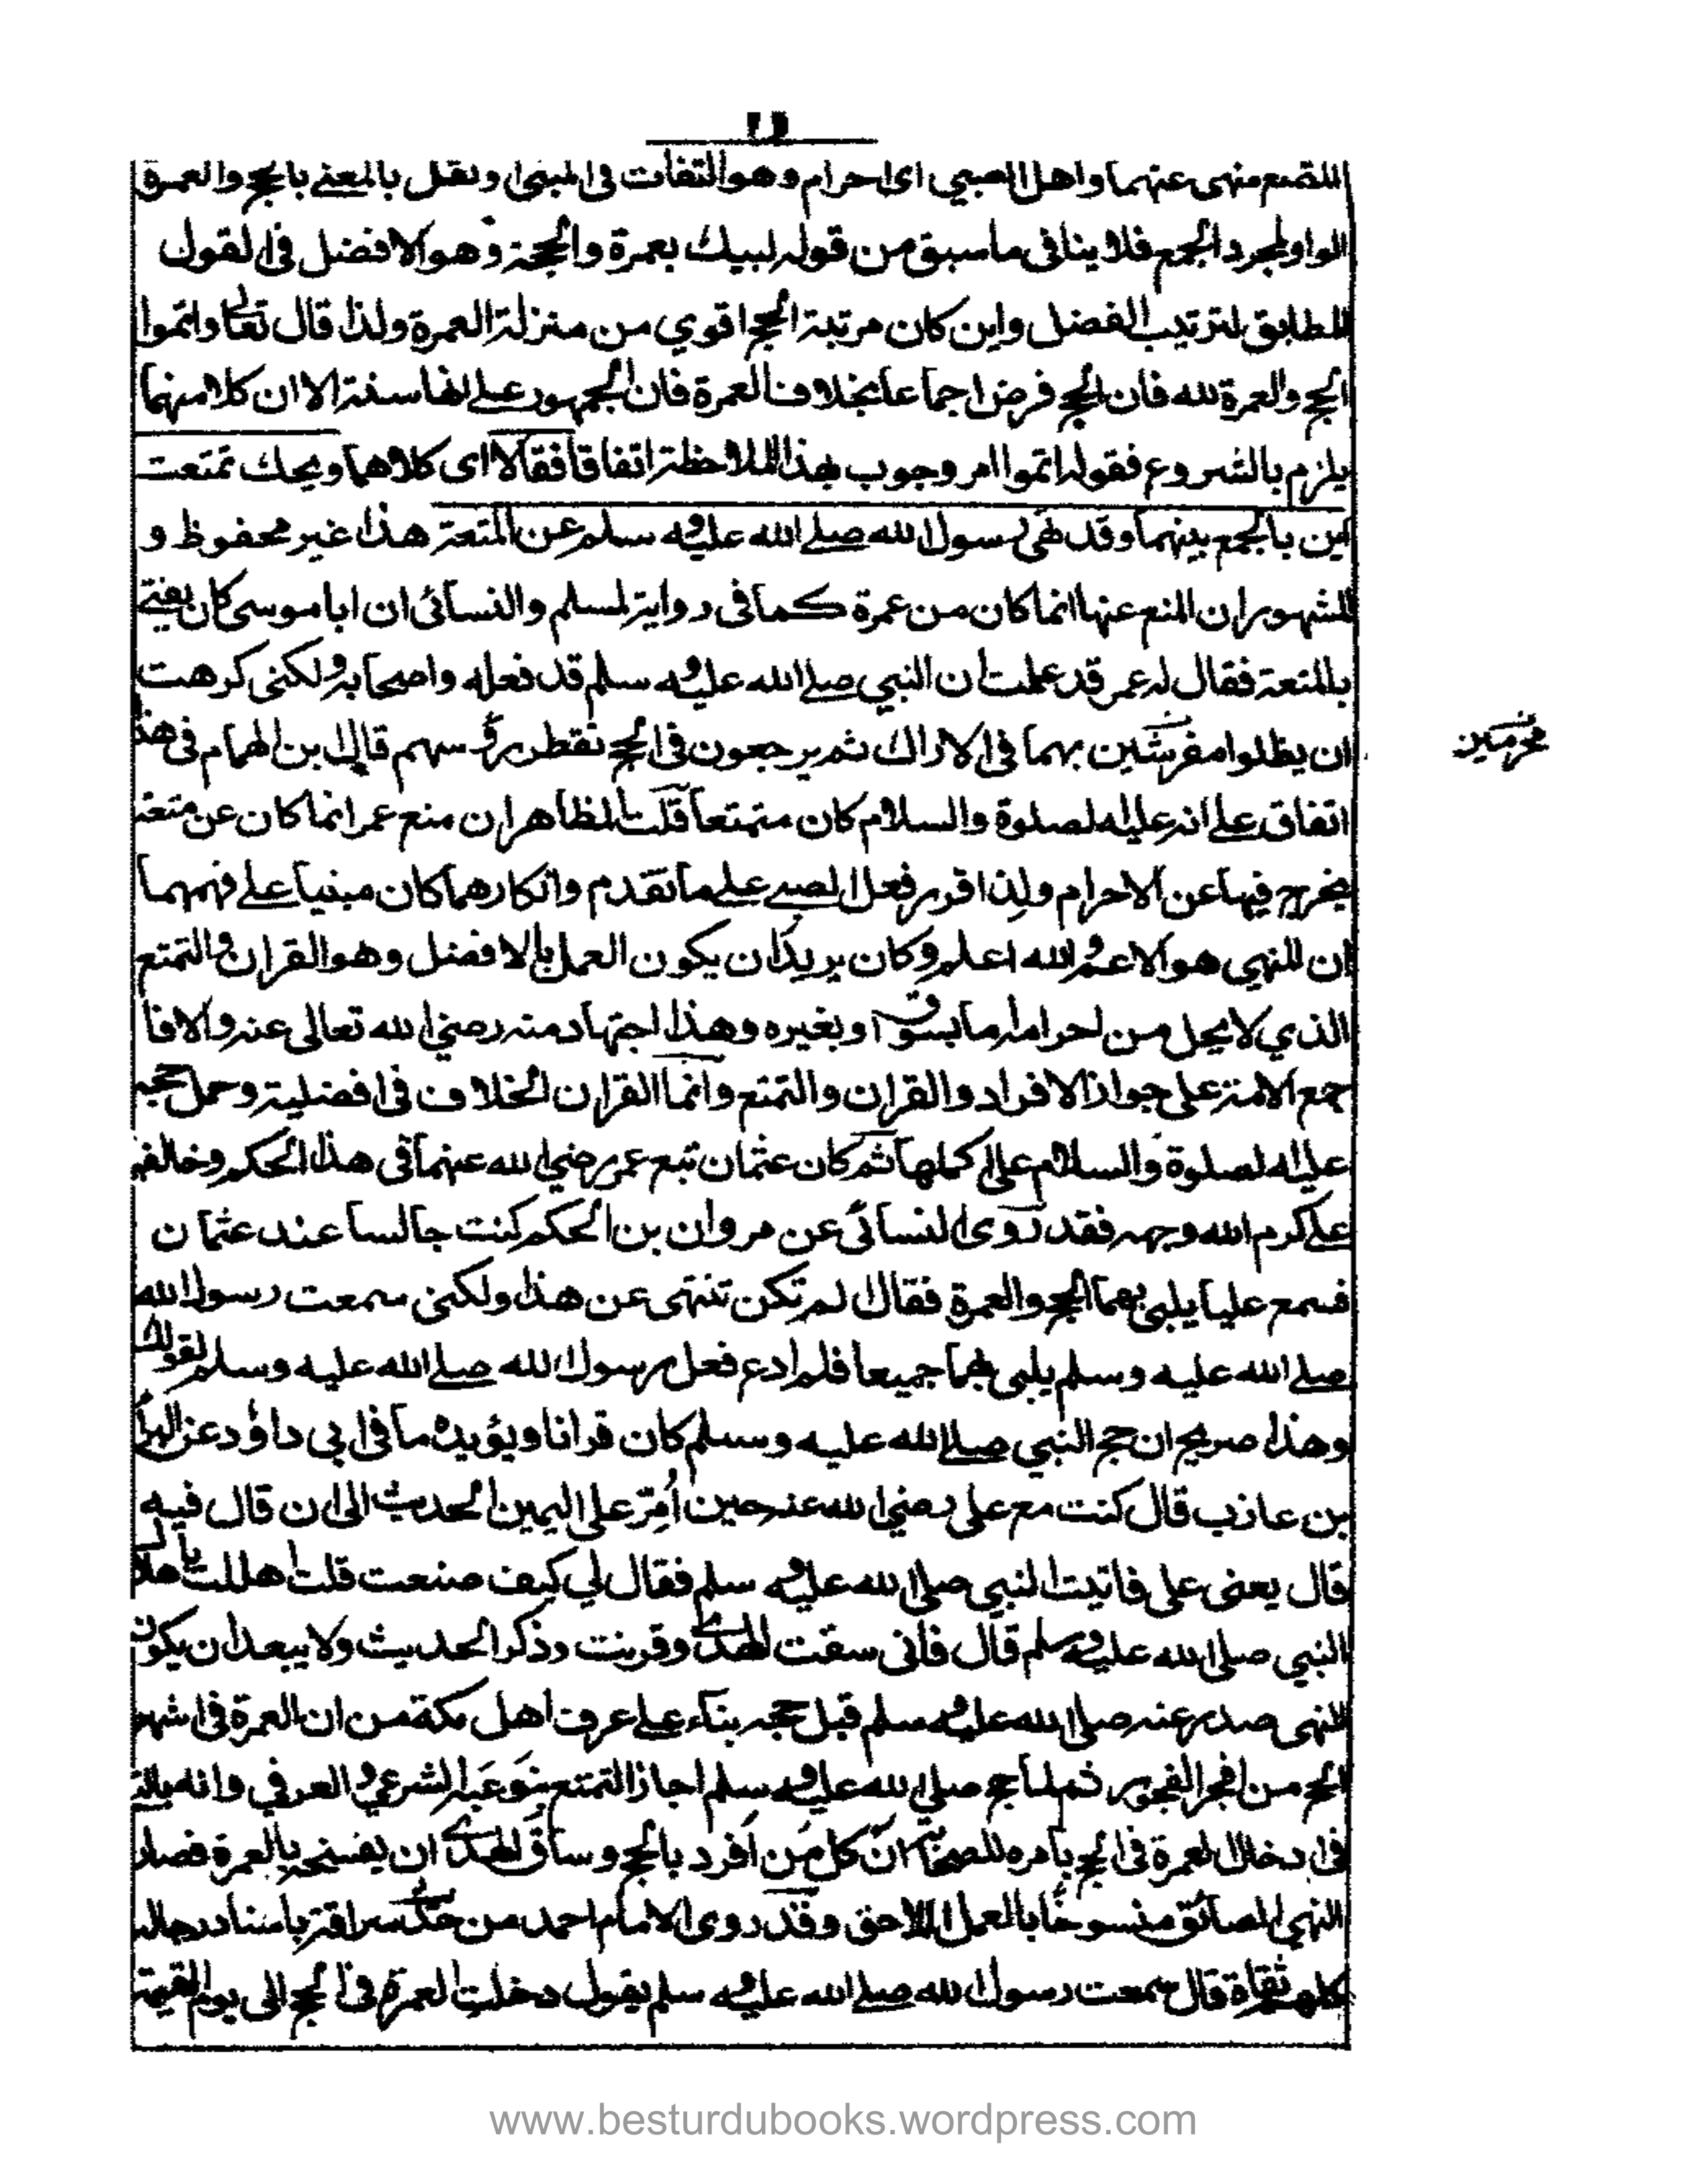 التمتع منهى عنهما واهل الصبي اى احرام وهو التفات فى المبنى ونقل بالمعنے بالحج والعمرة
الواو لمجرد الجمع فلا ينافى ما سبق من قوله لبيك بعمرة والحجة وهو الافضل فى القول
المطابق لترتيب الفضل واين كان مرتبة الحج اقوي من منزلة العمرة ولذا قال تعالى واتموا
الحج والعمرة لله فان الحج فرض اجماعا بخلاف العمرة فان الجمهور علے انها سنة الا ان كلا منهما
يلزم بالشروع فقوله اتموا امر وجوب بهذا الملاحظة اتفاقا فقالا اى كلاهما ويحك تمتعت
اين بالجمع بينهما وقد نهى رسول الله صلے الله عليه و سلم عن المتعة هذا غير محفوظ و
المشهور ان المنع عنها انما كان من عمرة كما فى رواية لمسلم والنسائى ان ابا موسى كان يفتے
بالمتعة فقال له عمر قد علمت ان النبي صلے الله عليه و سلم قد فعله واصحابه ولكنى كرهت
ان يظلوا مفرشين بهما فى الاراك ثم يرجعون فى الحج تقطر رؤسهم قال ابن الهمام فى هذا
محرمين
اتفاق علے انه عليه الصلوة والسلام كان متمتعا قلت الظاهر ان منع عمر انما كان عن متعة
يخرج فيها عن الاحرام ولذا اقرر فعل الصبے علے ما تقدم وانكارهما كان مبنيا علے فهمهما
ان النهي هو الاعم والله اعلم وكان يريد ان يكون العمل بالافضل وهو القران والتمتع
الذي لا يحل من احرامه اما بسوق او بغيره وهذا اجتهاد منه رضي الله تعالى عنه والا فا
جمع الامة على جواز الافراد والقران والتمتع وانما القران الخلاف فى افضلية وحمل حجه
عليه الصلوة والسلام على اكملها ثم كان عثمان تبع عمر رضي الله عنهما فى هذا الحكم وخالفه
علے كرم الله وجهه فقد روى النسائى عن مروان بن الحكم كنت جالسا عند عثمان
فسمع عليا يلبى بهما الحج والعمرة فقال الم تكن تنتهى عن هذا ولكنى سمعت رسول الله
صلے الله عليه وسلم يلبى بهما جميعا فلم ادع فعل رسول الله صلے الله عليه وسلم لقولك
وهذا صريح ان حج النبي صلے الله عليه وسلم كان قرانا ويؤيده ما فى ابي داؤد عن البراء
بن عازب قال كنت مع على رضي الله عنه حين أمر على اليمين الحديث الى ان قال فيه
قال يعنى على فاتيت النبي صلى الله عليه و سلم فقال لي كيف صنعت قلت اهللت باهلال
النبي صلى الله عليه وسلم قال فانى سقت الهدي وقرنت وذكر الحديث ولا يبعد ان يكون
النهى صدر عنه صلى الله عليه و سلم قبل حجه بناء علے عرف اهل مكة من ان العمرة فى اشهر
الحج من افجر الفجور ثم لما حج صلي الله عليه و سلم اجاز التمتع بنوعيه الشرعي والعرفي وانه بالغ
فى ادخال العمرة فى الحج بامره للصحابة ان كل من افرد بالحج وساق الهدي ان يفسخه بالعمرة فصار
النهي السابق منسوخا بالعمل اللاحق وقد روى الامام احمد من حديث سراقة باسناد رجاله
كلهم ثقاة قال سمعت رسول الله صلے الله عليه و سلم يقول دخلت العمرة فى الحج الى يوم القيمة
www.besturdubooks.wordpress.com